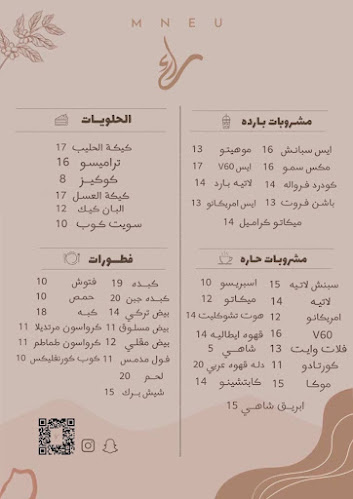 MNEU
مشروبات بارده
ايس سبانش 16
موهيتو 13
مكس سمو 16
ايس V60 17
كودرد فرواله 14
لاتيه بارد 14
باشن فروت 13
ايس امريكانو 13
ميكاتو كراميل 14
الحلويات
كيكة الحليب 17
تراميسو 16
كوكيز 8
كيكة العسل 17
البان كيك 12
سويت كوب 10
مشروبات حاره
سبنش لاتيه 15
اسبريسو 10
لاتيه 14
ميكاتو 12
امريكانو 12
هوت تشوكليت 14
V60 16
قهوه ايطاليه 14
فلات وايت 13
شاهي 5
كورتادو 11
دله قهوه عربي 20
موكا 15
كابتشينو 14
ابريق شاهي 15
فطورات
كبده 19
فتوش 10
كبده جبن 20
حمص 10
بيض تركي 14
كبه 18
بيض مسلوق 11
كرواسون مرتديلا 11
بيض مقلي 12
كرواسون طماطم 11
فول مدمس 11
كوب كورنفليكس 10
لحم 20
شيش برك 15